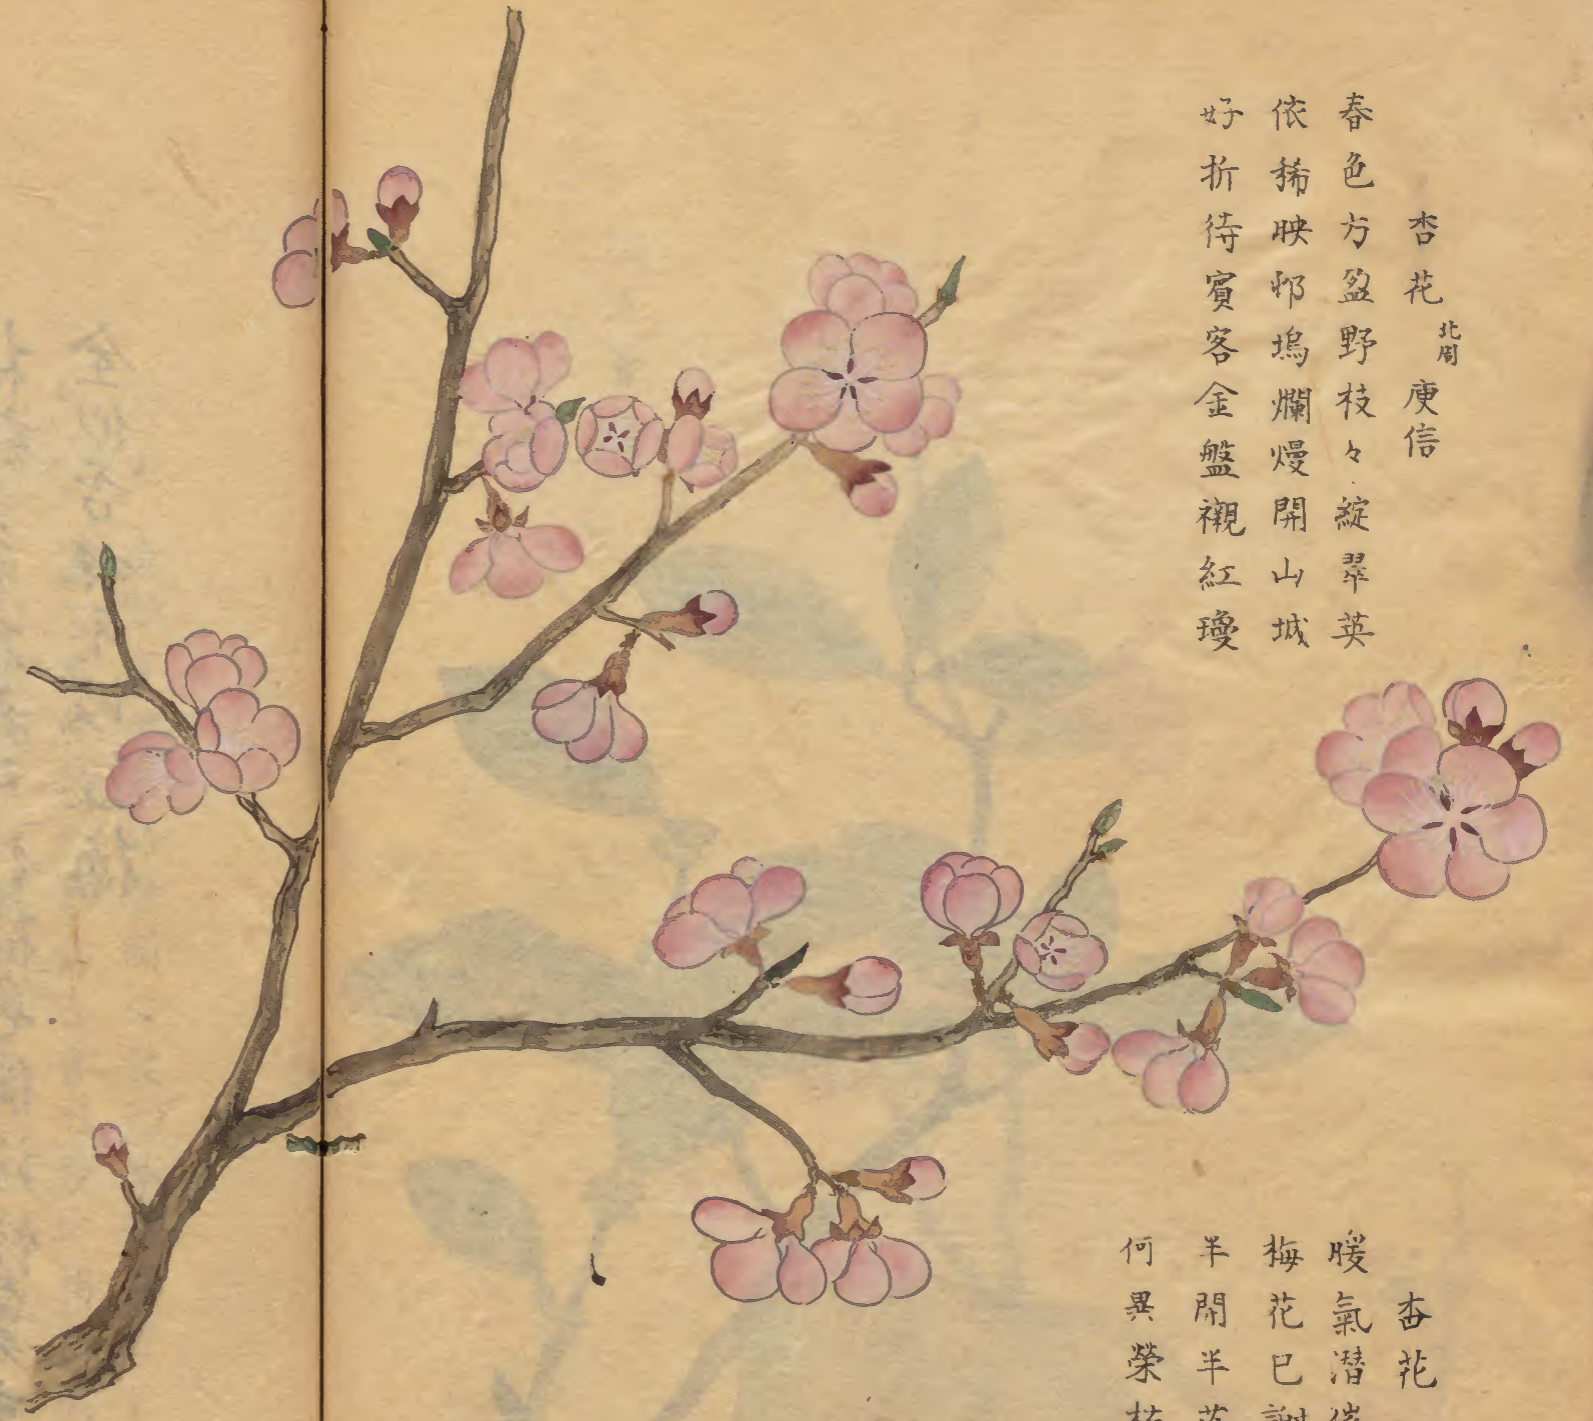 杏花 北周 庾信
春色方盈野枝々綻翠英
依稀映邨塢爛熳開山城
好折待賓客金盤襯紅瓊
杏花
暖氣潜催
梅花已謝
半開半落
何異榮枯